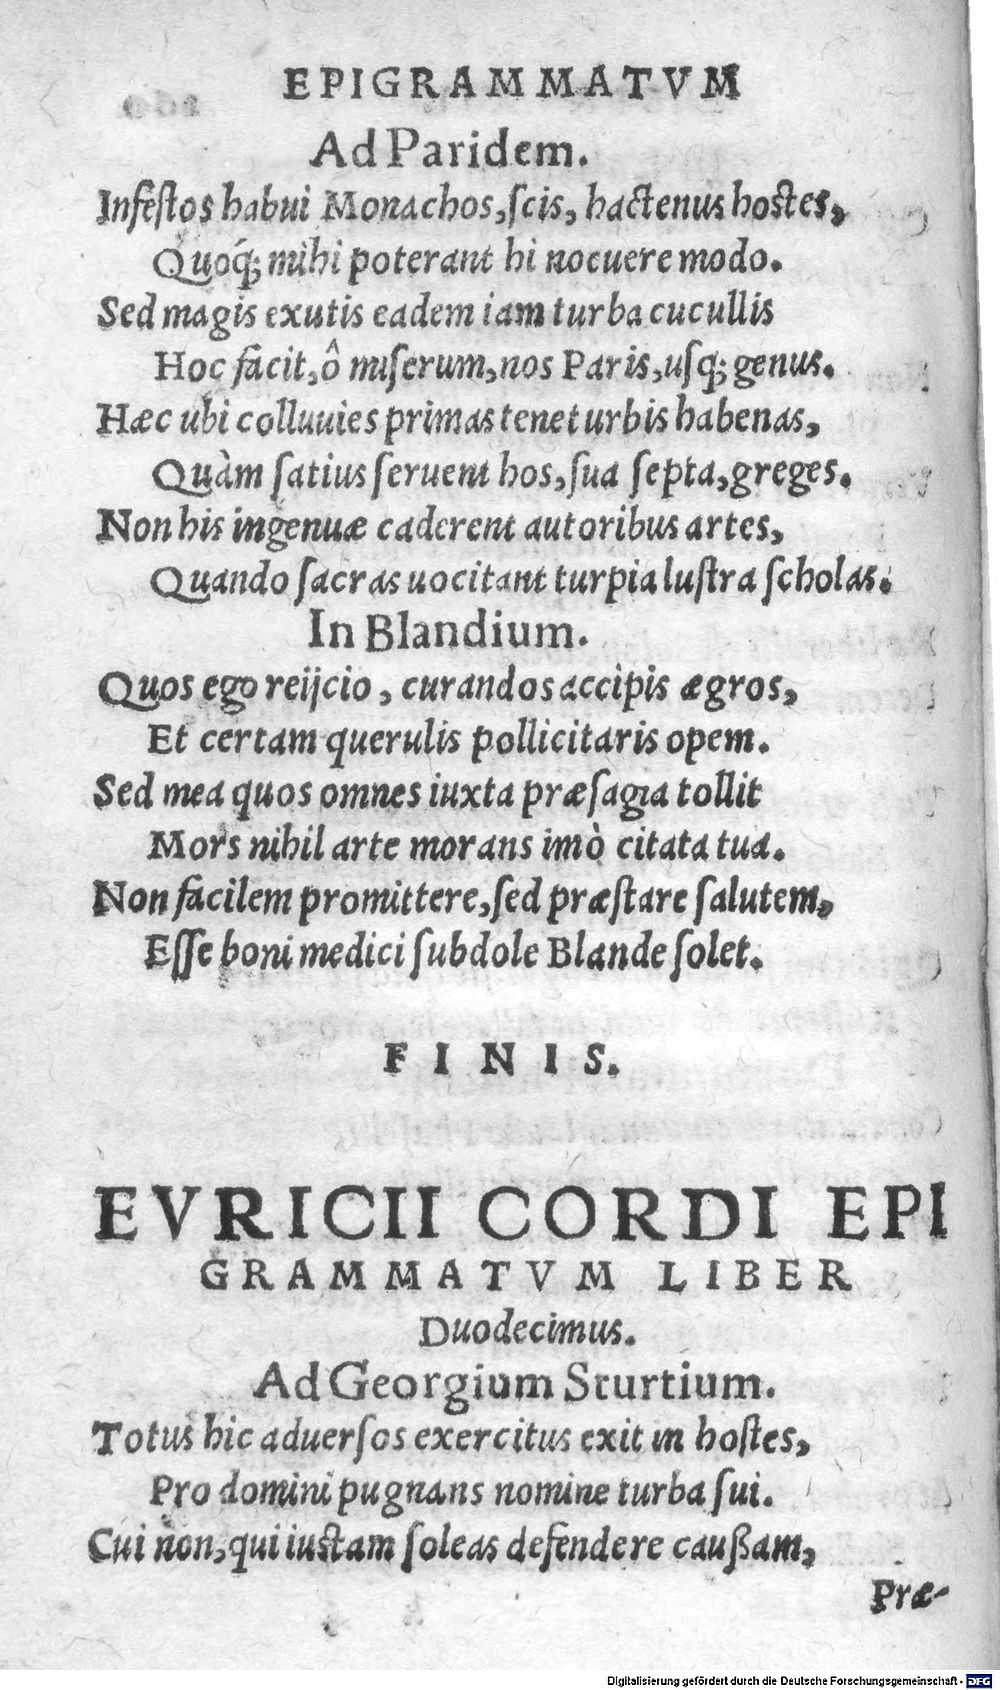 EPIGRAMMATVM
Ad Paridem.
Infestos habui Monachos, scis, hactenus hostes,
Quoq́; mihi poterant hi nocuere modo.
Sed magis exutis eadem iam turba cucullis
Hoc facit, ô miserum, nos Paris, usq; genus.
Hæc ubi colluuies primas tenet urbis habenas,
Quàm satius seruent hos, sua septa, greges.
Non his ingenuæ caderent autoribus artes,
Quando sacras uocitant turpia lustra scholas.
In Blandium.
Quos ego reijcio, curandos accipis ægros,
Et certam querulis pollicitaris opem.
Sed mea quos omnes iuxta præsagia tollit
Mors nihil arte morans imò citata tua.
Non facilem promittere, sed præstare salutem,
Esse boni medici subdole Blande solet.
FINIS.
EVRICII CORDI EPI
GRAMMATVM LIBER
Duodecimus.
Ad Georgium Sturtium.
Totus hic aduersos exercitus exit in hostes,
Pro domini pugnans nomine turba sui.
Cui non, qui iustam soleas defendere caußam,
Præ-
Digitalisierung gefördert durch die Deutsche Forschungsgemeinschaft - DFG